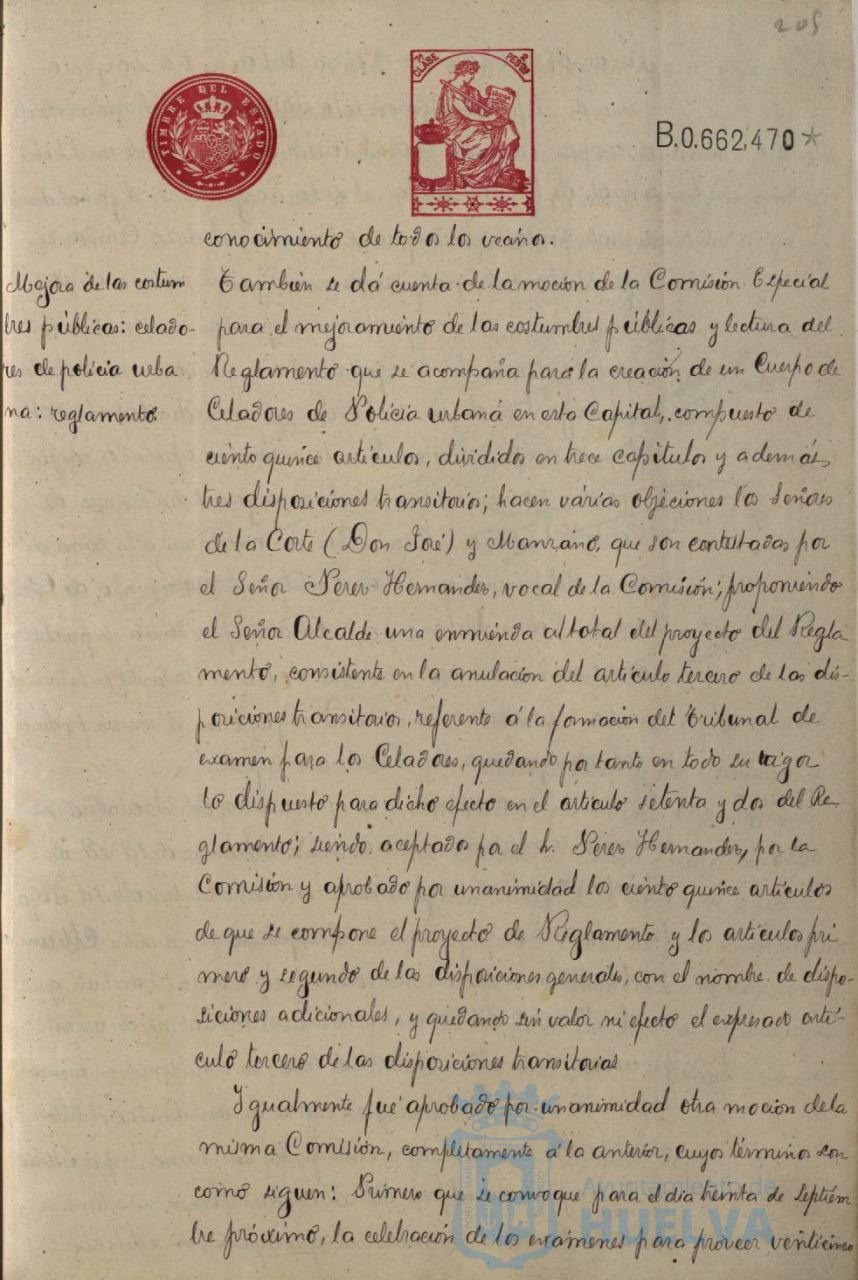 205
TIMBRE DEL ESTADO
7ª CLASE 2 PESTAS
B.0.662,470*
conocimiento de todos los vecinos.
Mejora de las costum
bres públicas: celado-
res de policia urba
na: reglamento.
También se dá cuenta de la moción de la Comisión Especial
para el mejoramiento de las costumbres públicas y lectura del
Reglamento que se acompaña para la creación de un Cuerpo de
Celadores de Policia urbana en esta Capital, compuesto de
ciento quince articulos, divididos en trece capitulos y además,
tres disposiciones transitorias; hacen várias objeciones los Señores
de la Corte (Don José) y Manzano, que son contestadas por
el Señor Perez Hernandez, vocal de la Comisión; proponiendo
el Señor Alcalde una enmienda al total del proyecto del Regla
mento, consistente en la anulacion del articulo tercero de las dis-
posiciones transitorias, referente á la formación del tribunal de
examen para los Celadores, quedando por tanto en todo su vigor
lo dispuesto para dicho efecto en el articulo setenta y dos del Re-
glamento; siendo aceptado por el Sr. Perez Hernandez, por la
Comisión y aprobado por unanimidad los ciento quince articulos
de que se compone el proyecto de Reglamento y los articulos pri
mero y segundo de las disposiciones generales, con el nombre de dispo-
siciones adicionales, y quedando sin valor ni efecto el expresado artí-
culo tercero de las disposiciones transitorias
Igualmente fué aprobado por unanimidad otra moción de la
misma Comisión, completamente á la anterior, cuyos términos son
como siguen: Primero que se convoque para el dia treinta de Septiem
bre próximo, la celebración de los exámenes para proveer venticinco
Ayuntamiento de
HUELVA